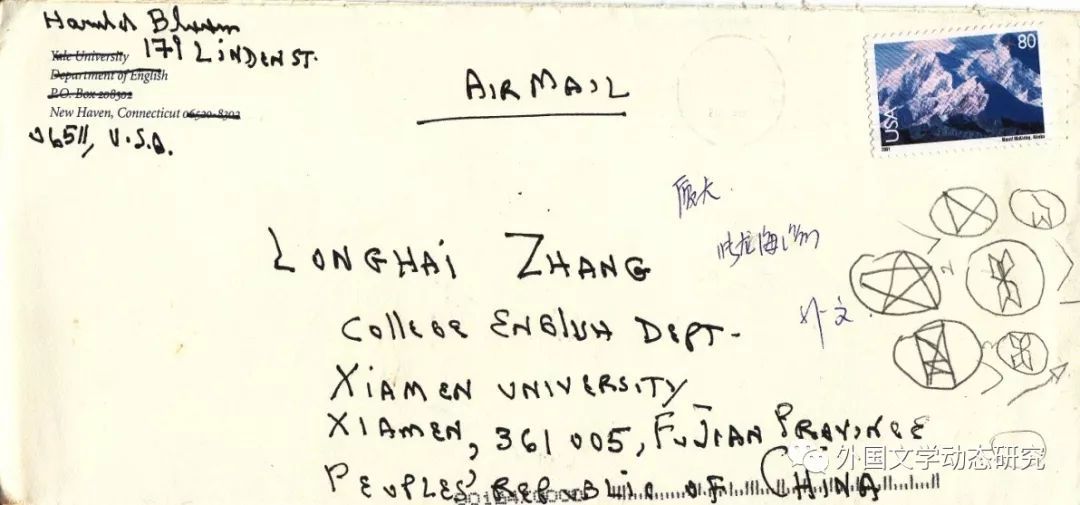 Harold Bloom
Yale University 179 LINDEN ST.
Department of English
P.O. Box 208302
New Haven, Connecticut 06520-8302
06511, U.S.A.
AIR MAIL
80
USA
2001
Mount McKinley, Alaska
厦大
LONGHAI ZHANG
COLLEGE ENGLISH DEPT-
外文
XIAMEN UNIVERSITY
XIAMEN, 361005, FUJIAN PROVINCE
PEOPLES' REPUBLIC OF CHINA
外国文学动态研究